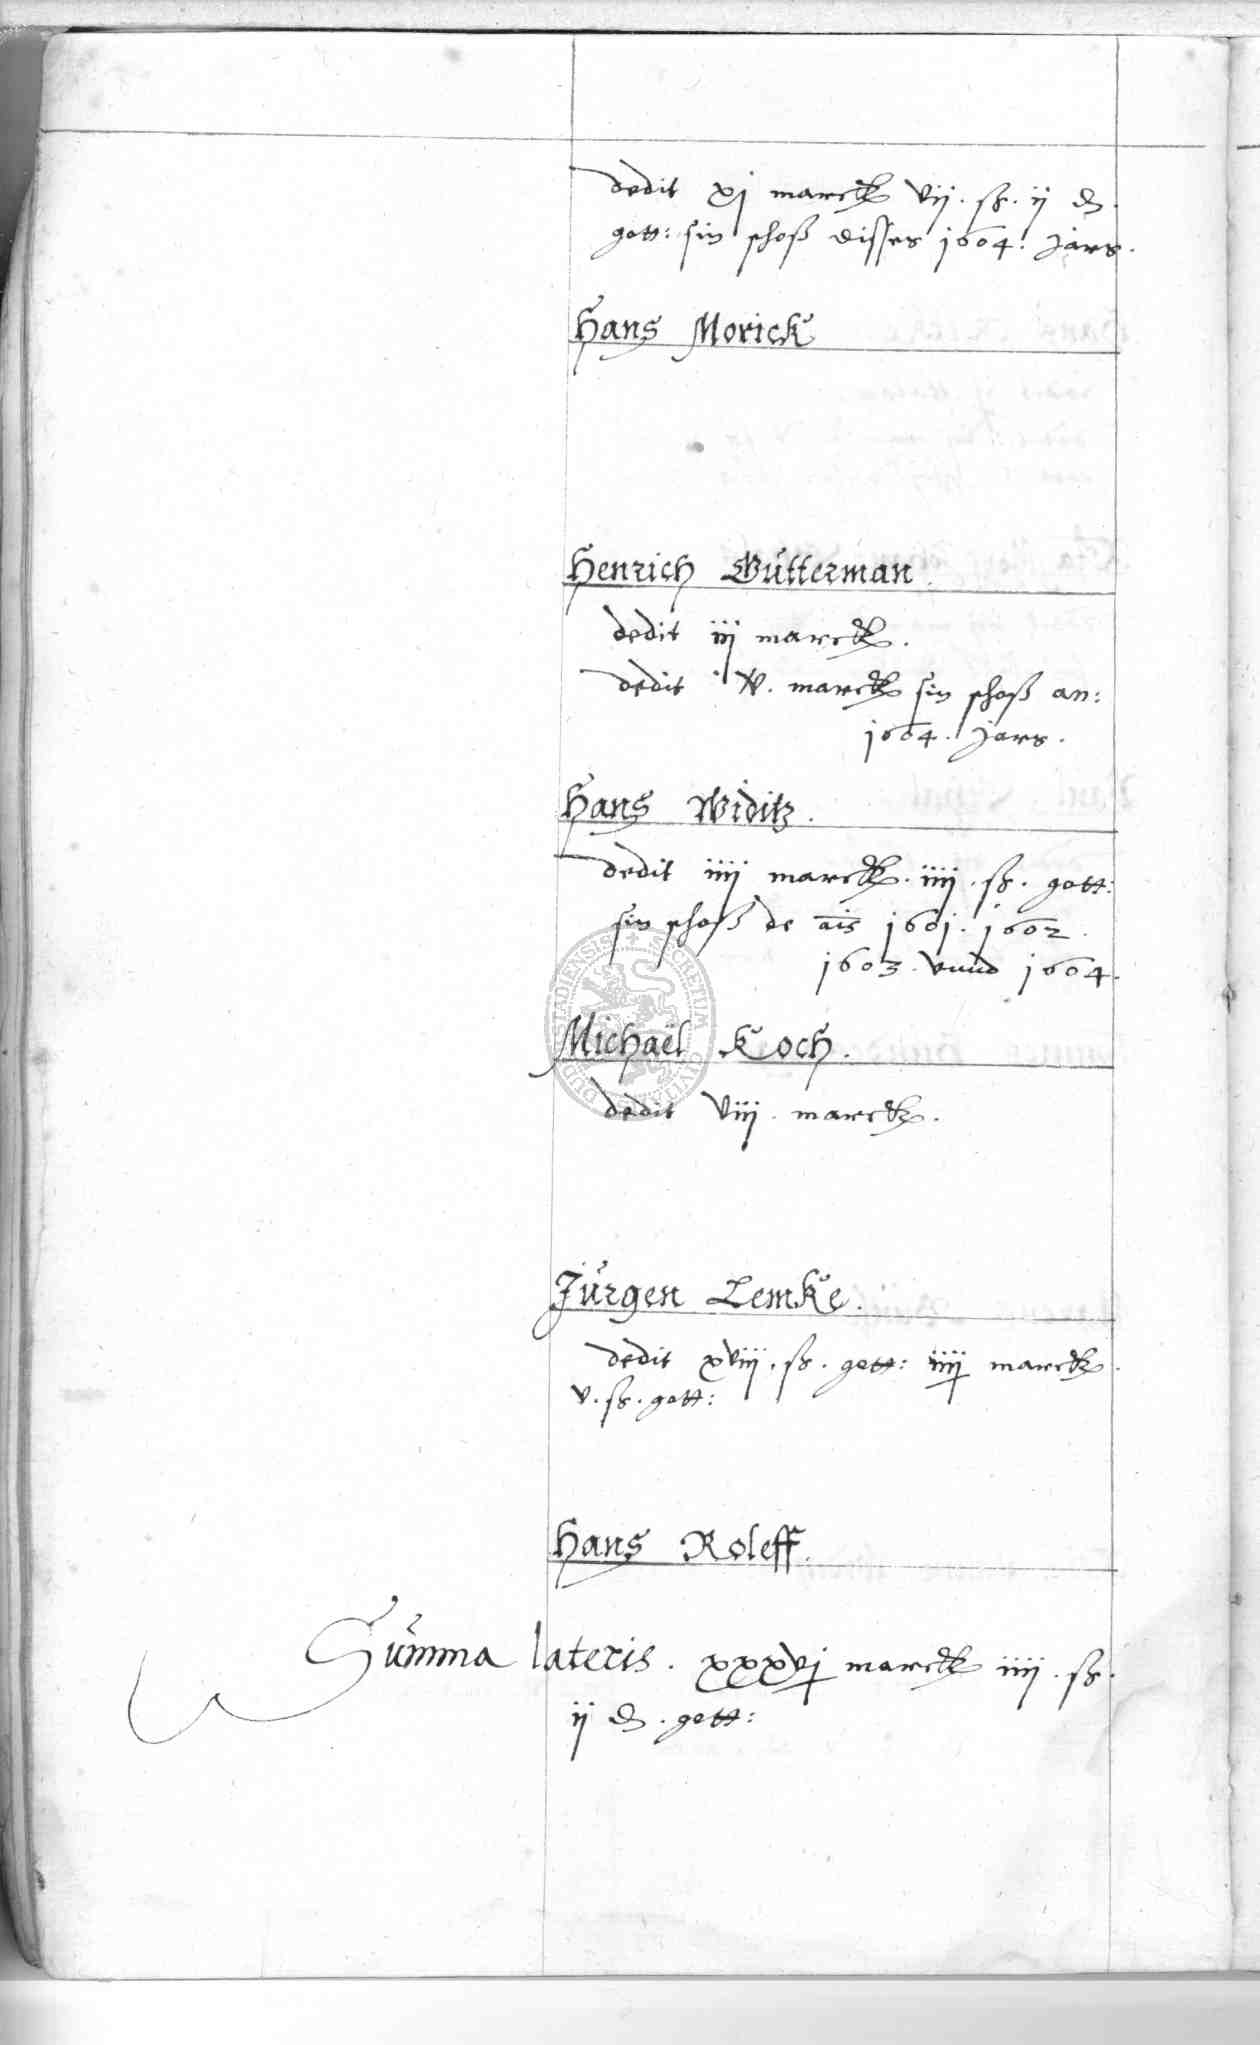 dedit xj marck vij. ß. ij d.
gott: sin schoß disses 1604. Jars.
Hans Morick
Henrich Gütterman.
dedit iij marck.
dedit v. marck sin schoß an:
1604. Jars.
Hans Widitz.
dedit iiij marck. iiij. ß. gott:
sin schoß de ais 1601. 1602.
1603. vnnd 1604.
Michaël Koch.
dedit viij. marck.
Jürgen Lemke.
dedit xviij. ß. gott: iiij marck.
v. ß. gott:
Hans Roleff.
Summa lateris. xxxvj marck iiij. ß.
ij d. gott:
SECRETUM CIVITATIS DUDERSTADIENSIS